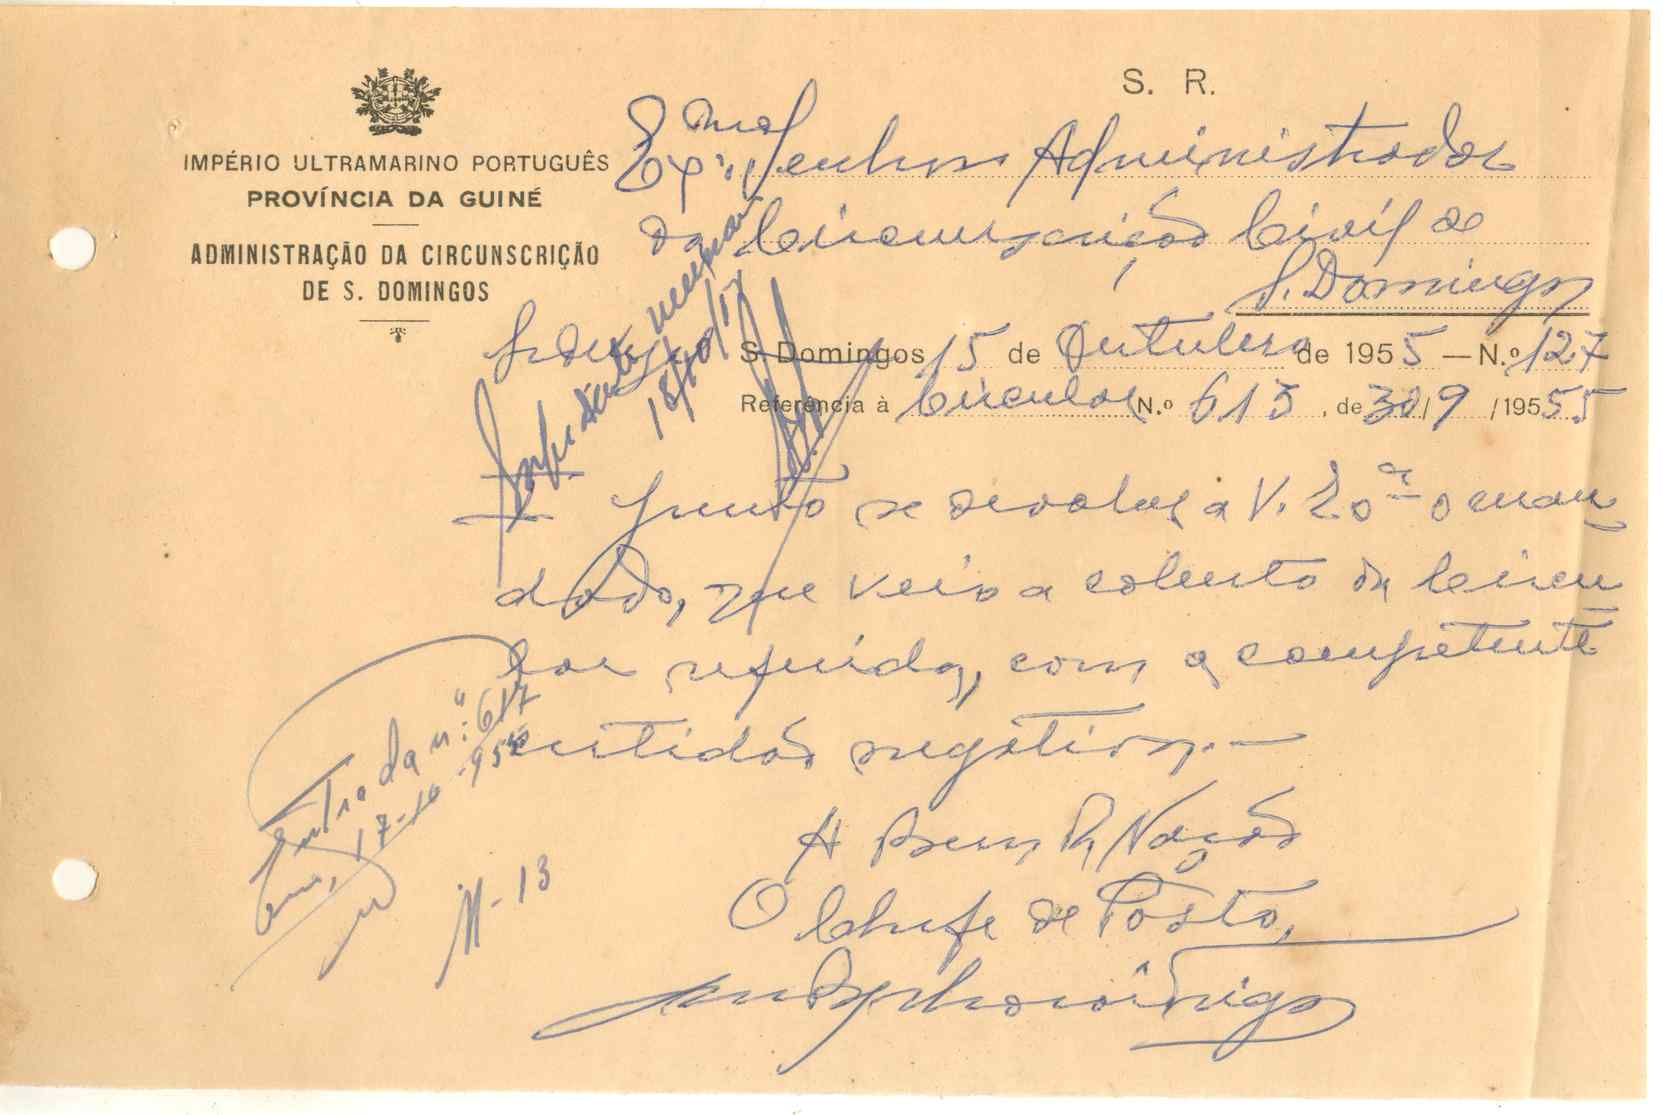 S. R.
IMPÉRIO ULTRAMARINO PORTUGUÊS
PROVÍNCIA DA GUINÉ
ADMINISTRAÇÃO DA CIRCUNSCRIÇÃO
DE S. DOMINGOS
Exmo. Senhor Administrador
da Circunscrição Civil de
S. Domingos
S. Domingos 15 de Outubro de 1955 — N.º 127
Referência à Circular N.º 613, de 30/9/1955
18/10/
Junto se devolve a V. Exª o man
dado, que veio a coberto da Circu
lar referida, com a competente
certidão negativa.—
A Bem da Nação
O Chefe de Posto,
Entrada n.º 617
Em, 17-10-955
M-13